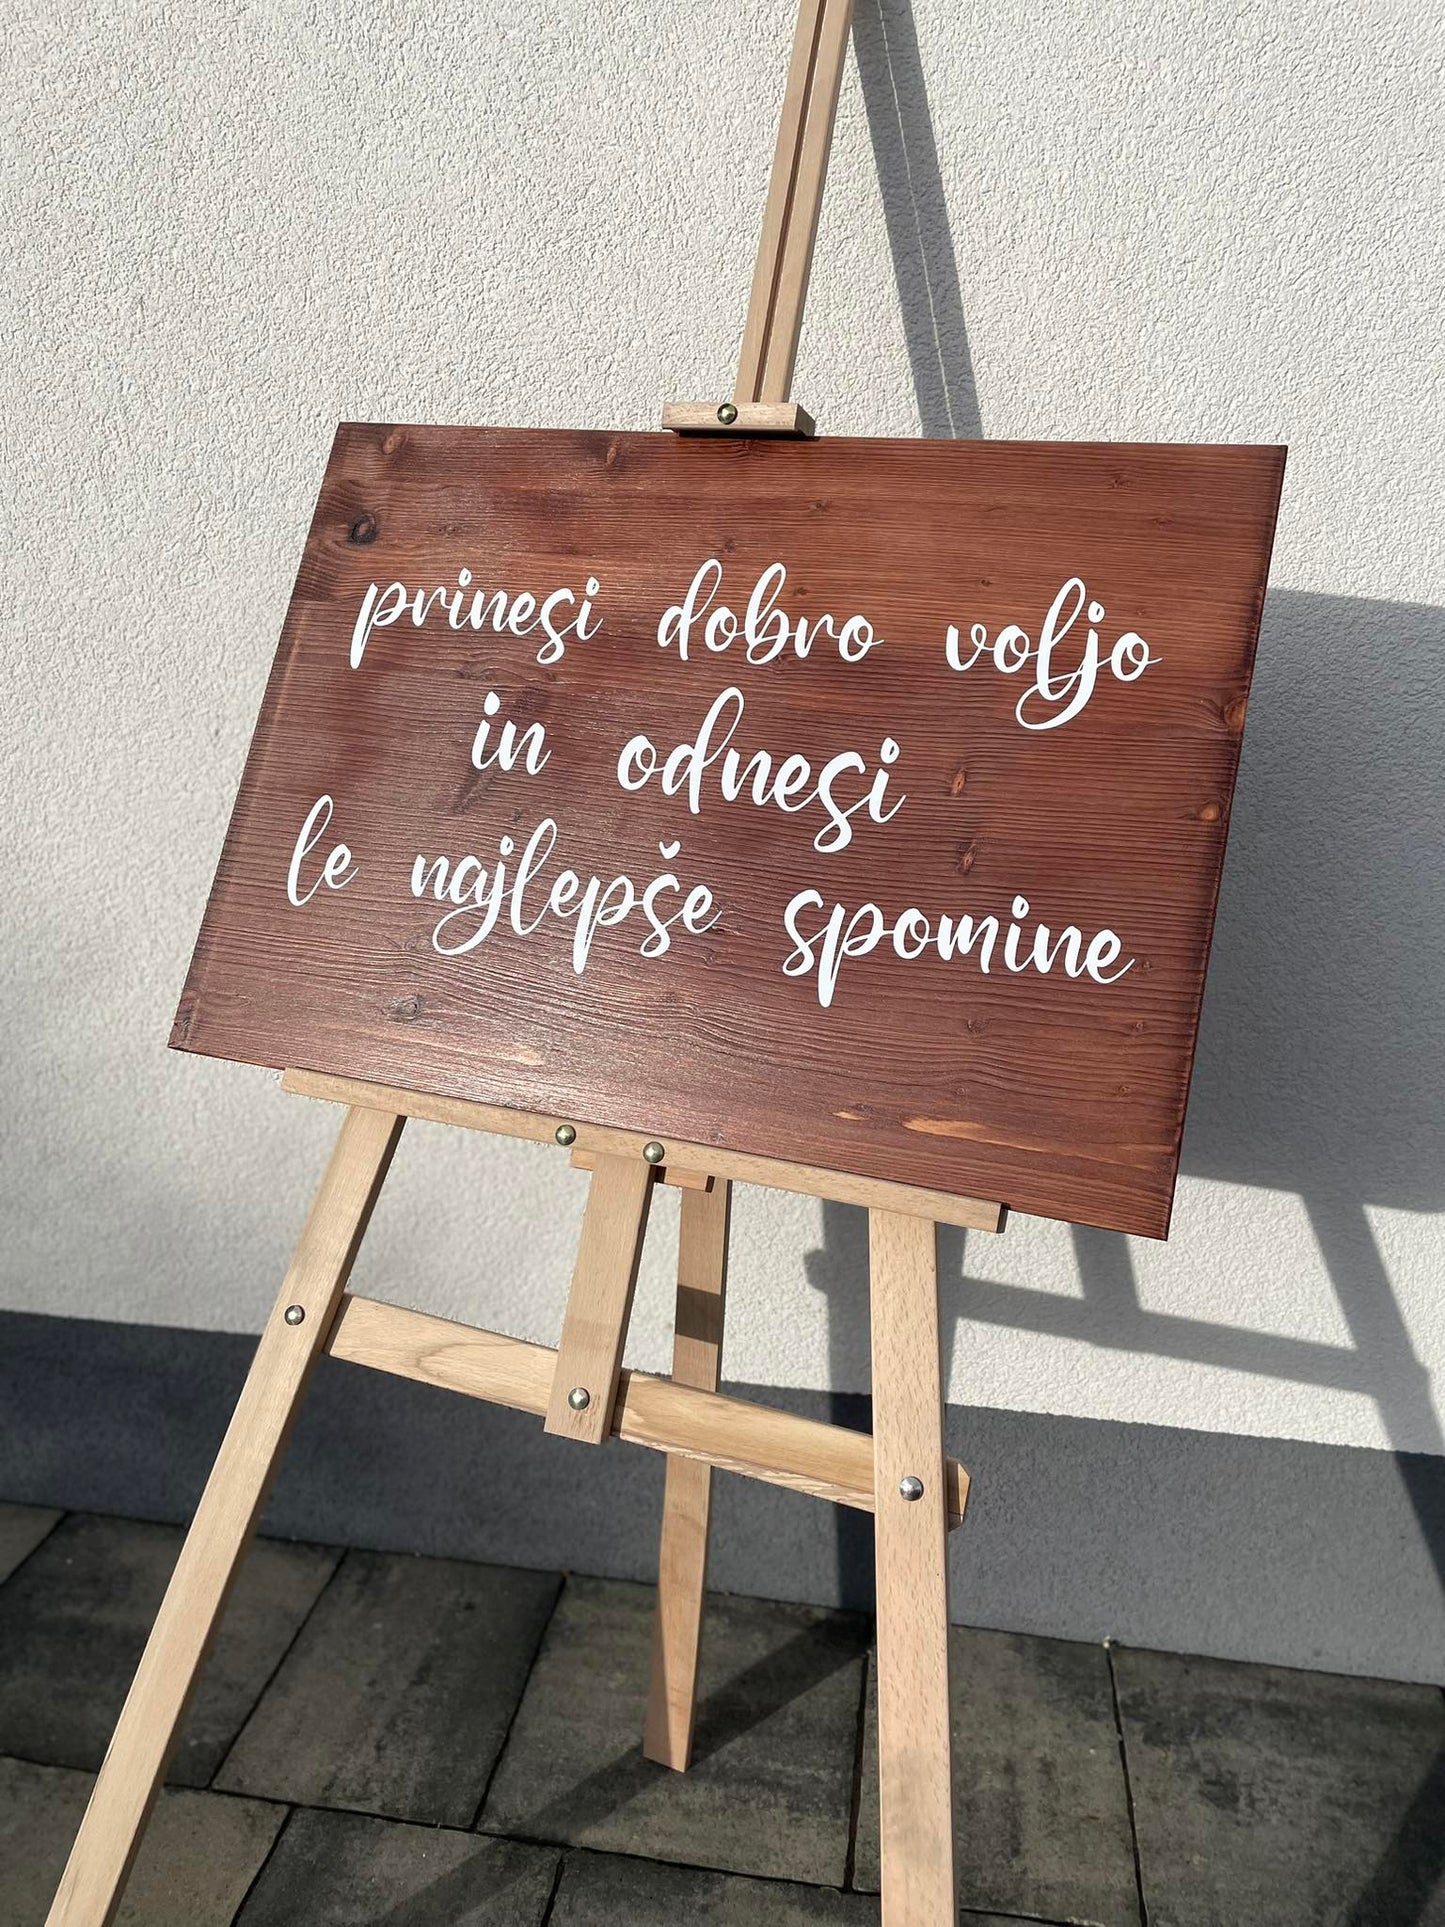 prinesi dobro voljo
in odnesi
le najlepše spomine